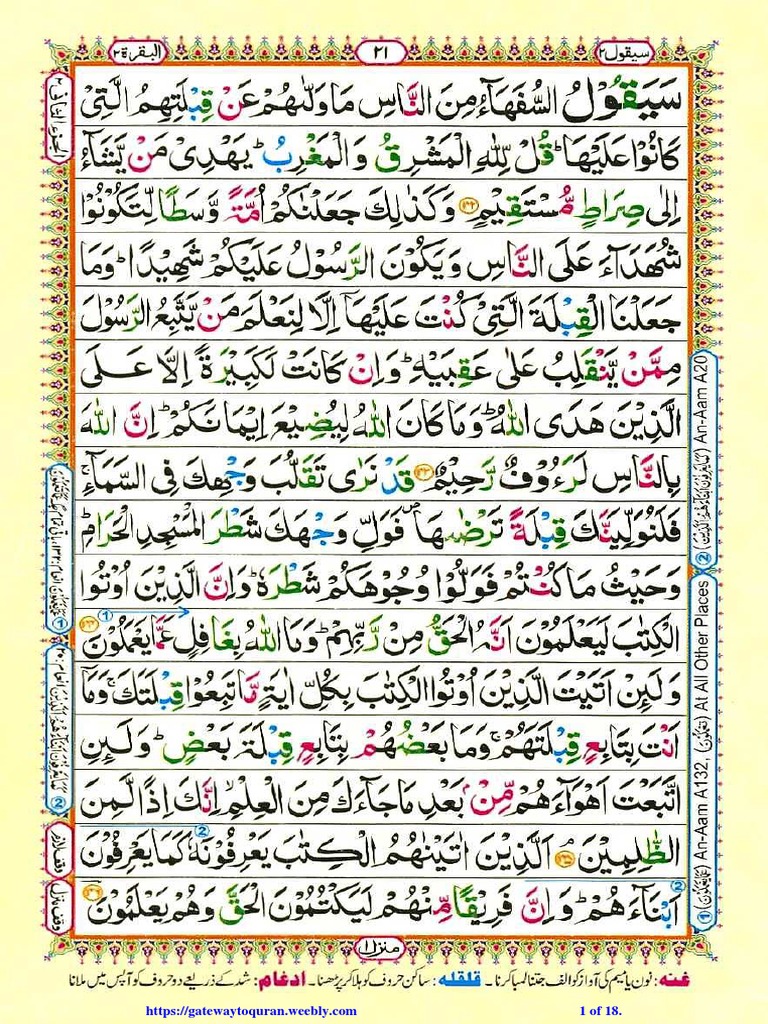 سیقول ۲ ۲۱ البقرة ۲
سَيَقُوْلُ السُّفَهَآءُ مِنَ النَّاسِ مَا وَلّٰىهُمْ عَنْ قِبْلَتِهِمُ الَّتِىْ
كَانُوْا عَلَيْهَا ؕ قُلْ لِّلّٰهِ الْمَشْرِقُ وَالْمَغْرِبُ ؕ يَهْدِىْ مَنْ يَّشَآءُ
اِلٰى صِرَاطٍ مُّسْتَقِيْمٍ ۝۱۴۲ وَكَذٰلِكَ جَعَلْنٰكُمْ اُمَّةً وَّسَطًا لِّتَكُوْنُوْا
شُهَدَآءَ عَلَى النَّاسِ وَيَكُوْنَ الرَّسُوْلُ عَلَيْكُمْ شَهِيْدًا ؕ وَمَا
جَعَلْنَا الْقِبْلَةَ الَّتِىْ كُنْتَ عَلَيْهَآ اِلَّا لِنَعْلَمَ مَنْ يَّتَّبِعُ الرَّسُوْلَ
مِمَّنْ يَّنْقَلِبُ عَلٰى عَقِبَيْهِ ؕ وَاِنْ كَانَتْ لَكَبِيْرَةً اِلَّا عَلَى
الَّذِيْنَ هَدَى اللّٰهُ ؕ وَمَا كَانَ اللّٰهُ لِيُضِيْعَ اِيْمَانَكُمْ ؕ اِنَّ اللّٰهَ
بِالنَّاسِ لَرَءُوْفٌ رَّحِيْمٌ ۝۱۴۳ قَدْ نَرٰى تَقَلُّبَ وَجْهِكَ فِى السَّمَآءِ ۚ
فَلَنُوَلِّيَنَّكَ قِبْلَةً تَرْضٰىهَا ۪ فَوَلِّ وَجْهَكَ شَطْرَ الْمَسْجِدِ الْحَرَامِ ؕ
وَحَيْثُ مَا كُنْتُمْ فَوَلُّوْا وُجُوْهَكُمْ شَطْرَهٗ ؕ وَاِنَّ الَّذِيْنَ اُوْتُوا
الْكِتٰبَ لَيَعْلَمُوْنَ اَنَّهُ الْحَقُّ مِنْ رَّبِّهِمْ ؕ وَمَا اللّٰهُ بِغَافِلٍ عَمَّا يَعْمَلُوْنَ ۝۱۴۴
وَلَئِنْ اَتَيْتَ الَّذِيْنَ اُوْتُوا الْكِتٰبَ بِكُلِّ اٰيَةٍ مَّا تَبِعُوْا قِبْلَتَكَ ۚ وَمَآ
اَنْتَ بِتَابِعٍ قِبْلَتَهُمْ ۚ وَمَا بَعْضُهُمْ بِتَابِعٍ قِبْلَةَ بَعْضٍ ؕ وَلَئِنِ
اتَّبَعْتَ اَهْوَآءَهُمْ مِّنْۢ بَعْدِ مَا جَآءَكَ مِنَ الْعِلْمِ ۙ اِنَّكَ اِذًا لَّمِنَ
الظّٰلِمِيْنَ ۝۱۴۵ اَلَّذِيْنَ اٰتَيْنٰهُمُ الْكِتٰبَ يَعْرِفُوْنَهٗ كَمَا يَعْرِفُوْنَ
اَبْنَآءَهُمْ ؕ وَاِنَّ فَرِيْقًا مِّنْهُمْ لَيَكْتُمُوْنَ الْحَقَّ وَهُمْ يَعْلَمُوْنَ ۝۱۴۶
منزل ۱
غنه: نون یا میم کی آواز کو الف جتنا لمبا کرنا۔ قلقله: ساکن حروف کو ہلا کر پڑھنا۔ ادغام: شد کے ذریعے دو حروف کو آپس میں ملانا
An-Aam A20
① An-Aam A132, At All Other Places
https://gatewaytoquran.weebly.com 1 of 18.